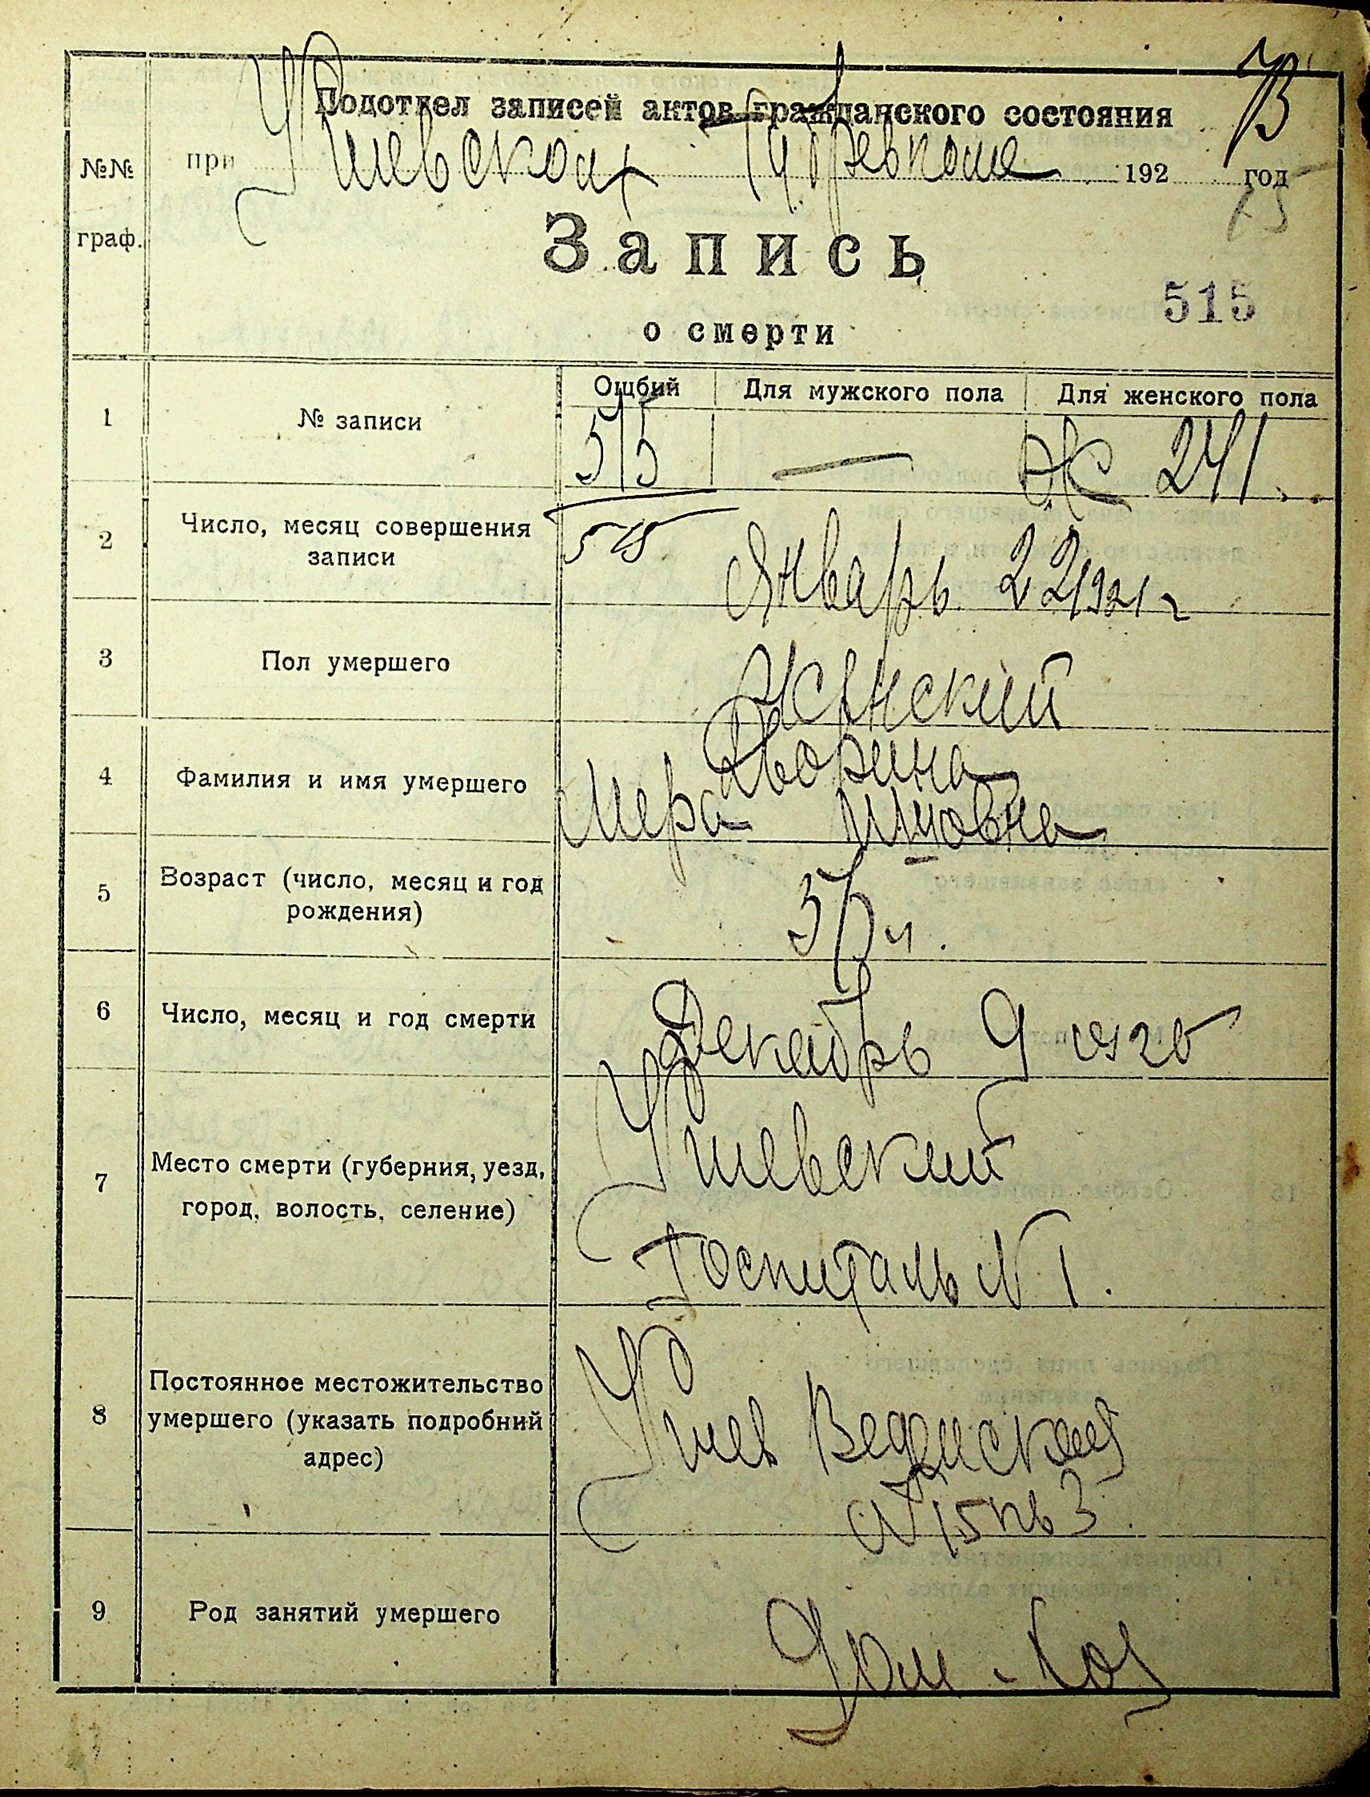 Подотдел записей актов гражданского состояния
при Киевском Губревкоме 192 год
№№ граф.
Запись
515
о смерти
Ощбий Для мужского пола Для женского пола
1 № записи 515 — Ж 241.
2 Число, месяц совершения записи 515 Январь 22 1921 г
3 Пол умершего Женский
4 Фамилия и имя умершего Дворкина
Мера
5 Возраст (число, месяц и год рождения)
6 Число, месяц и год смерти Декабрь 9 1920
7 Место смерти (губерния, уезд, город, волость, селение) Киевский
Госпиталь № 1.
8 Постоянное местожительство умершего (указать подробний адрес) Киев
№ 15 кв 3.
9 Род занятий умершего Дом-Хоз